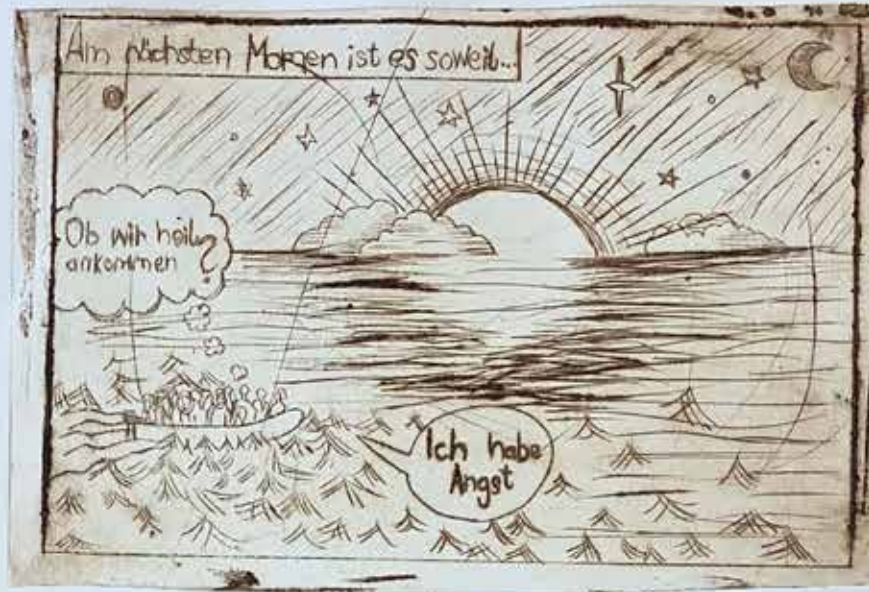 Am nächsten Morgen ist es soweit...
Ob wir heil
ankommen ?
Ich habe
Angst